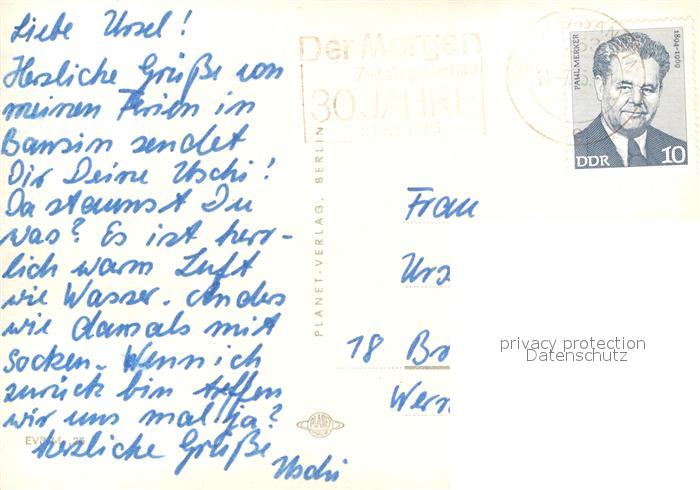 Liebe Ursel!
Herzliche Grüße von
meinen Ferien in
Bansin sendet
Dir Deine Uschi!
Da staunst Du
was? Es ist herr-
lich warm Luft
wie Wasser. Anders
wie damals mit
Socken. Wenn ich
zurück bin treffen
wir uns mal ja?
herzliche Grüße
Uschi
Der Morgen
30 JAHRE
PAUL MERKER
1894-1969
DDR 10
PLANET-VERLAG, BERLIN
Frau
Urs
18 Br
Wern
PLANET
privacy protection
Datenschutz